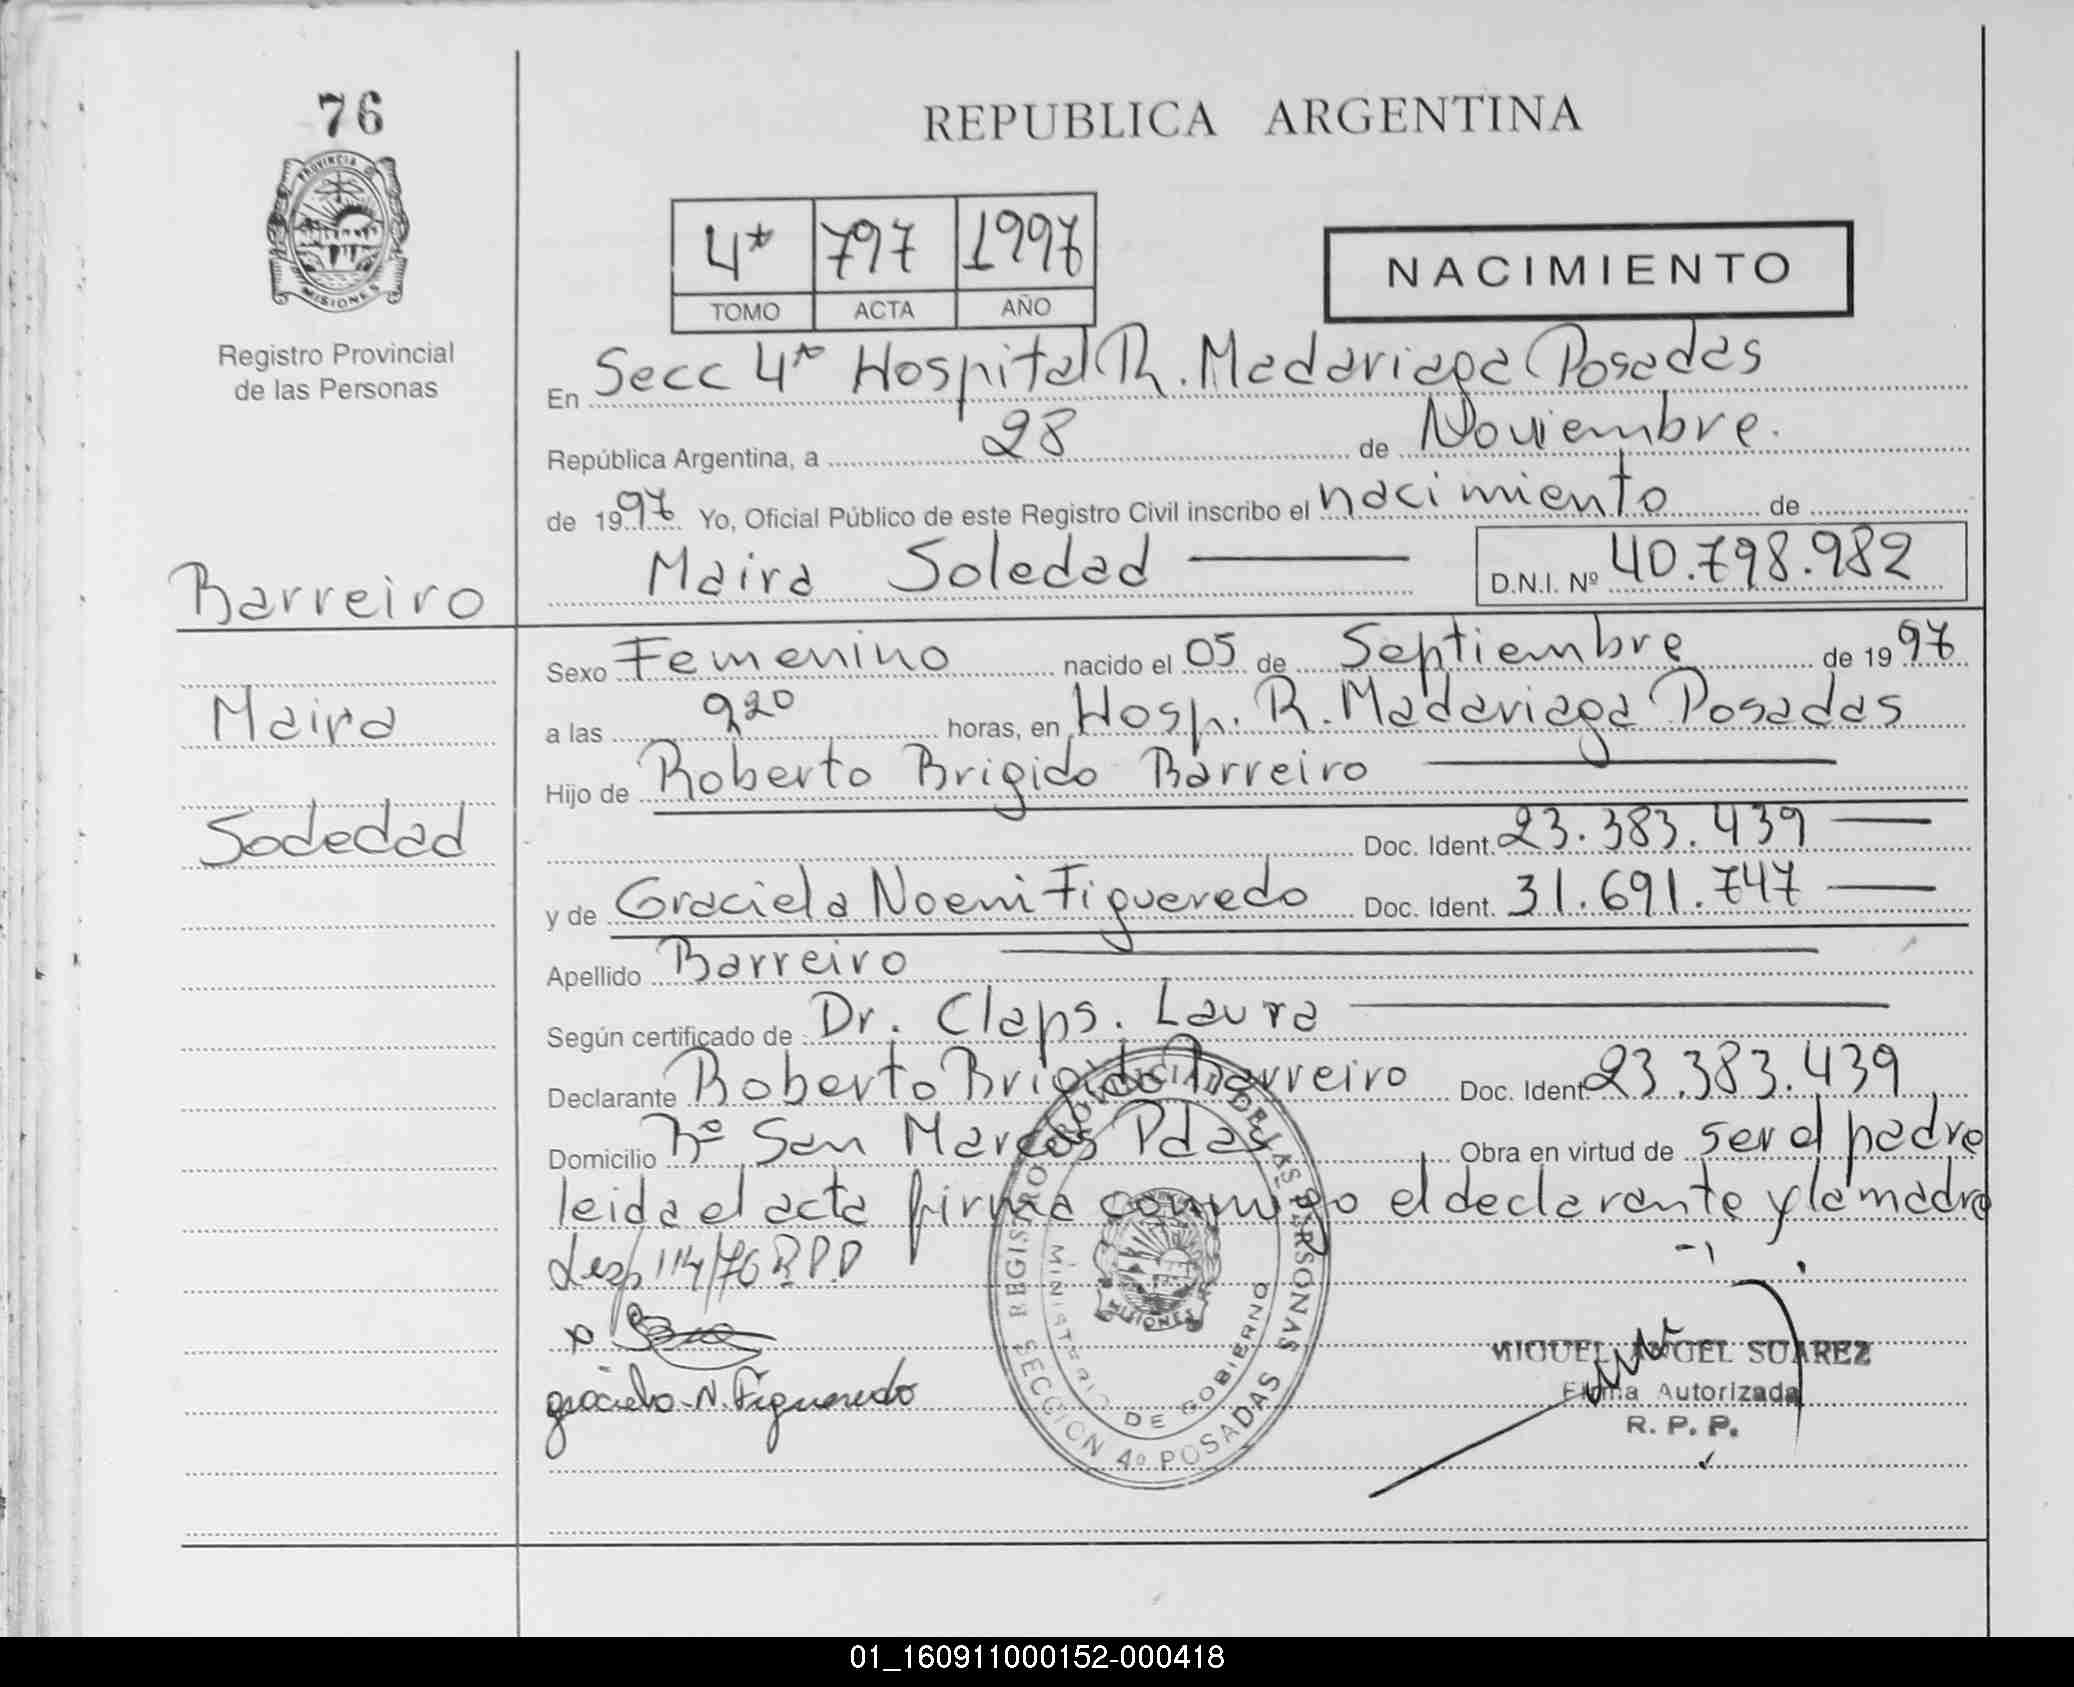 76
PROVINCIA DE
MISIONES
Registro Provincial
de las Personas
REPUBLICA ARGENTINA
4ta 797 1997
TOMO ACTA AÑO
NACIMIENTO
En Secc 4ta Hospital R. Madariaga Posadas
República Argentina, a 28 de Noviembre.
de 1997 Yo, Oficial Público de este Registro Civil inscribo el nacimiento de
Maira Soledad D.N.I. Nº 40.798.982
Barreiro
Maira
Sodedad
Sexo Femenino nacido el 05 de Septiembre de 1997
a las 920 horas, en Hosp. R. Madariaga Posadas
Hijo de Roberto Brigido Barreiro
Doc. Ident. 23.383.439
y de Graciela Noemi Figueredo Doc. Ident. 31.691.747
Apellido Barreiro
Según certificado de Dr. Claps. Laura
Declarante Roberto Brigido Barreiro Doc. Ident. 23.383.439
Domicilio Bº San Marcos Pdas Obra en virtud de ser el padre
leida el acta firma conmigo el declarante y la madre
114/76 R.P.P
Graciela N. Figueredo
REGISTRO PROVINCIAL DE LAS PERSONAS
MINISTERIO DE GOBIERNO
MISIONES
SECCION 4º POSADAS
MIGUEL ANGEL SUAREZ
Firma Autorizada
R. P. P.
01_160911000152-000418